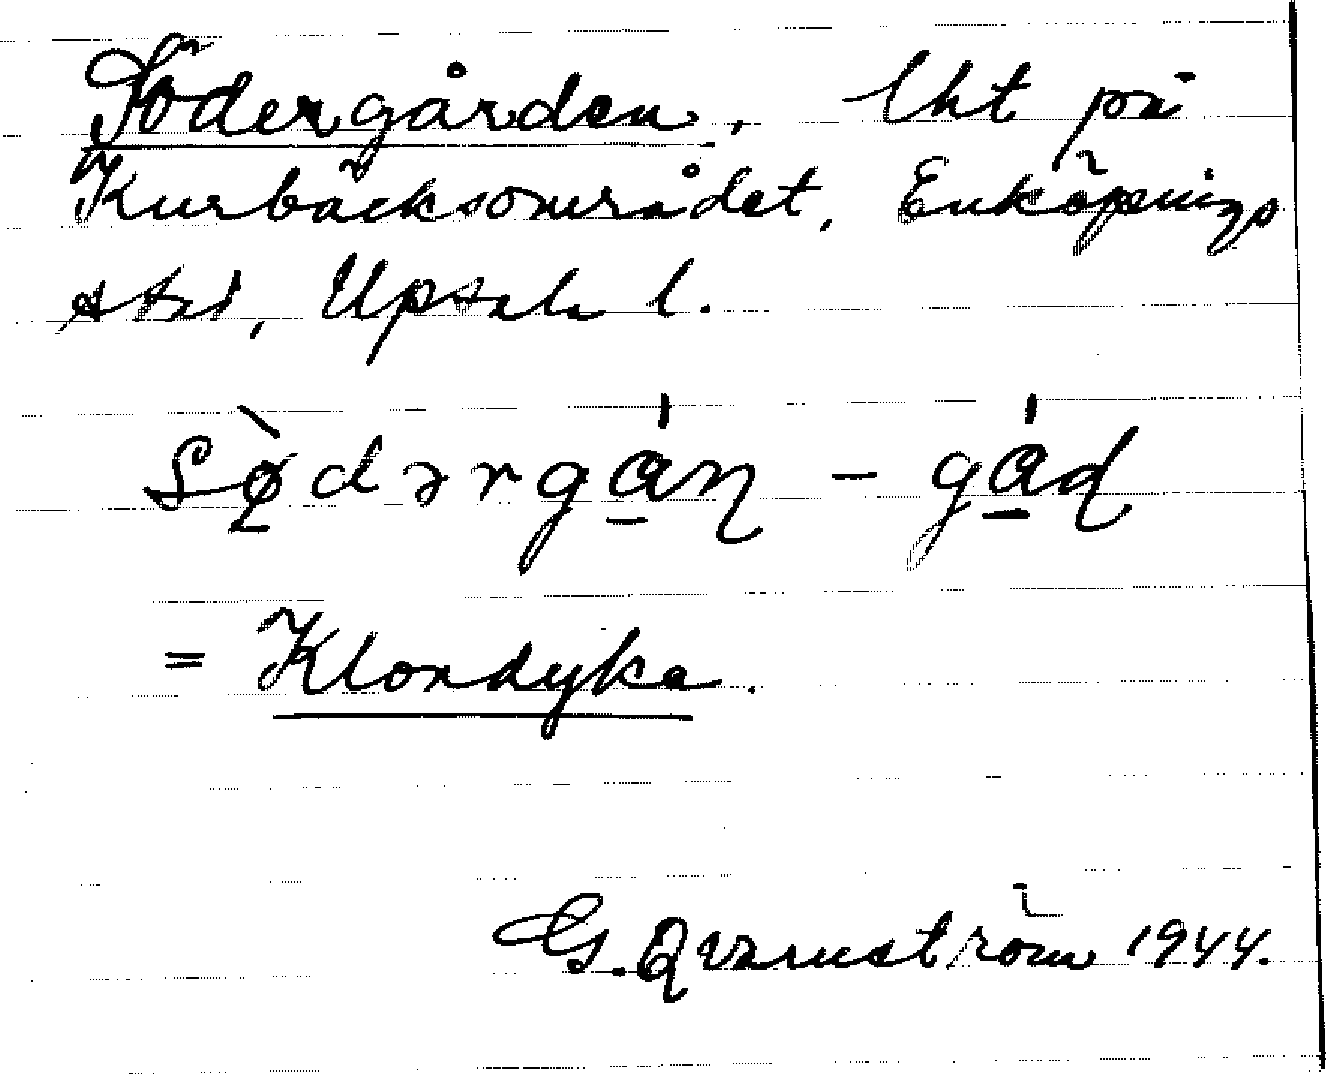 Södergården, lht på
Kurbäcksområdet, Enköpings
stad, Upsala l.
Sø̀dərgán – gád
= Klondyka.
G. Qvarnström 1944.